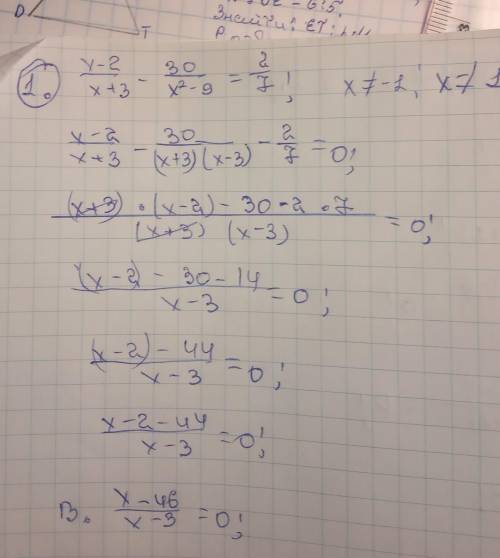 D
T
Знайти: ET;
1. \frac{x-2}{x+3} - \frac{30}{x²-9} = \frac{2}{7}; x ≠ -1; x ≠ 1
\frac{x-2}{x+3} - \frac{30}{(x+3)(x-3)} - \frac{2}{7} = 0;
\frac{(x+3)·(x-2)-30-2·7}{(x+3)(x-3)} = 0;
\frac{(x-2)-30-14}{x-3} = 0;
\frac{(x-2)-44}{x-3} = 0;
\frac{x-2-44}{x-3} = 0;
В. \frac{x-46}{x-3} = 0;